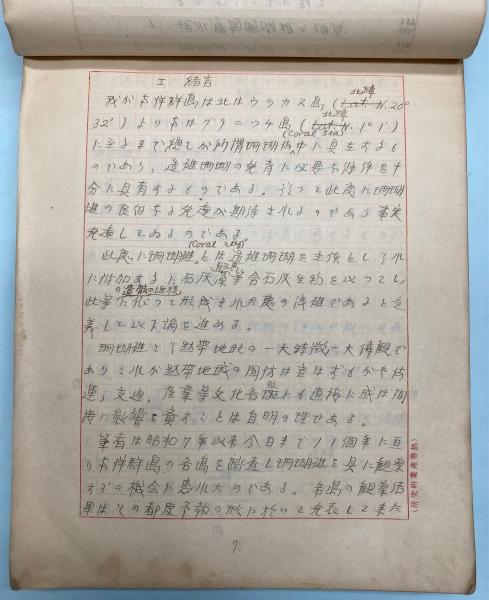 I 緒言
我が南洋群島は北はウラカス島(北緯20°
32')より南はグリニッチ島(北緯1°1')
に至るまで総てが所謂珊瑚海(Coral sea)中に具在するも
のであり、造礁珊瑚の発育に必要な條件を十
分に具有するものである。従つて此處に珊瑚
礁の良好なる発達が期待されるのである事実
発達してゐるのである。
此處に珊瑚礁(Coral reef)とは造礁珊瑚を主体とし之れ
に附加するに石灰藻等含石灰生物を以つてし、
此等の遺骸の堆積に依つて形成された處の浅礁であると定
義して以下論を進める。
珊瑚礁こそ熱帯地形の一大特徴一大偉観で
ありこれが熱帯地域の国防は言はずもがな海
運、交通、産業等文化各般にも直接に或は間
接に影響を齎すことは自明の理である。
筆者は昭和7年以来今日まで11個年に亘
り南洋群島の各島を踏査して珊瑚礁を具に観察
するの機会に恵れたのである。各島の観察結
果はその都度予報の形に於いて発表して来た
(熱帯産業研究所)
7